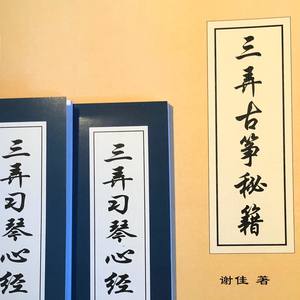 三弄习琴心经
三弄习琴心经
三弄古筝秘籍
谢佳 著